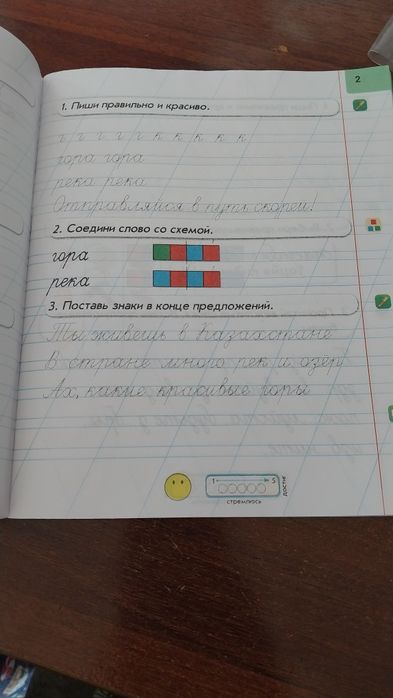 2
1. Пиши правильно и красиво.
г г г г г к к к к к
гора гора
река река
Отправляйся в путь скорей!
2. Соедини слово со схемой.
гора
река
3. Поставь знаки в конце предложений.
Ты живёшь в Казахстане
В стране много рек и озёр
Ах, какие красивые горы
1 5
достиг
стремлюсь